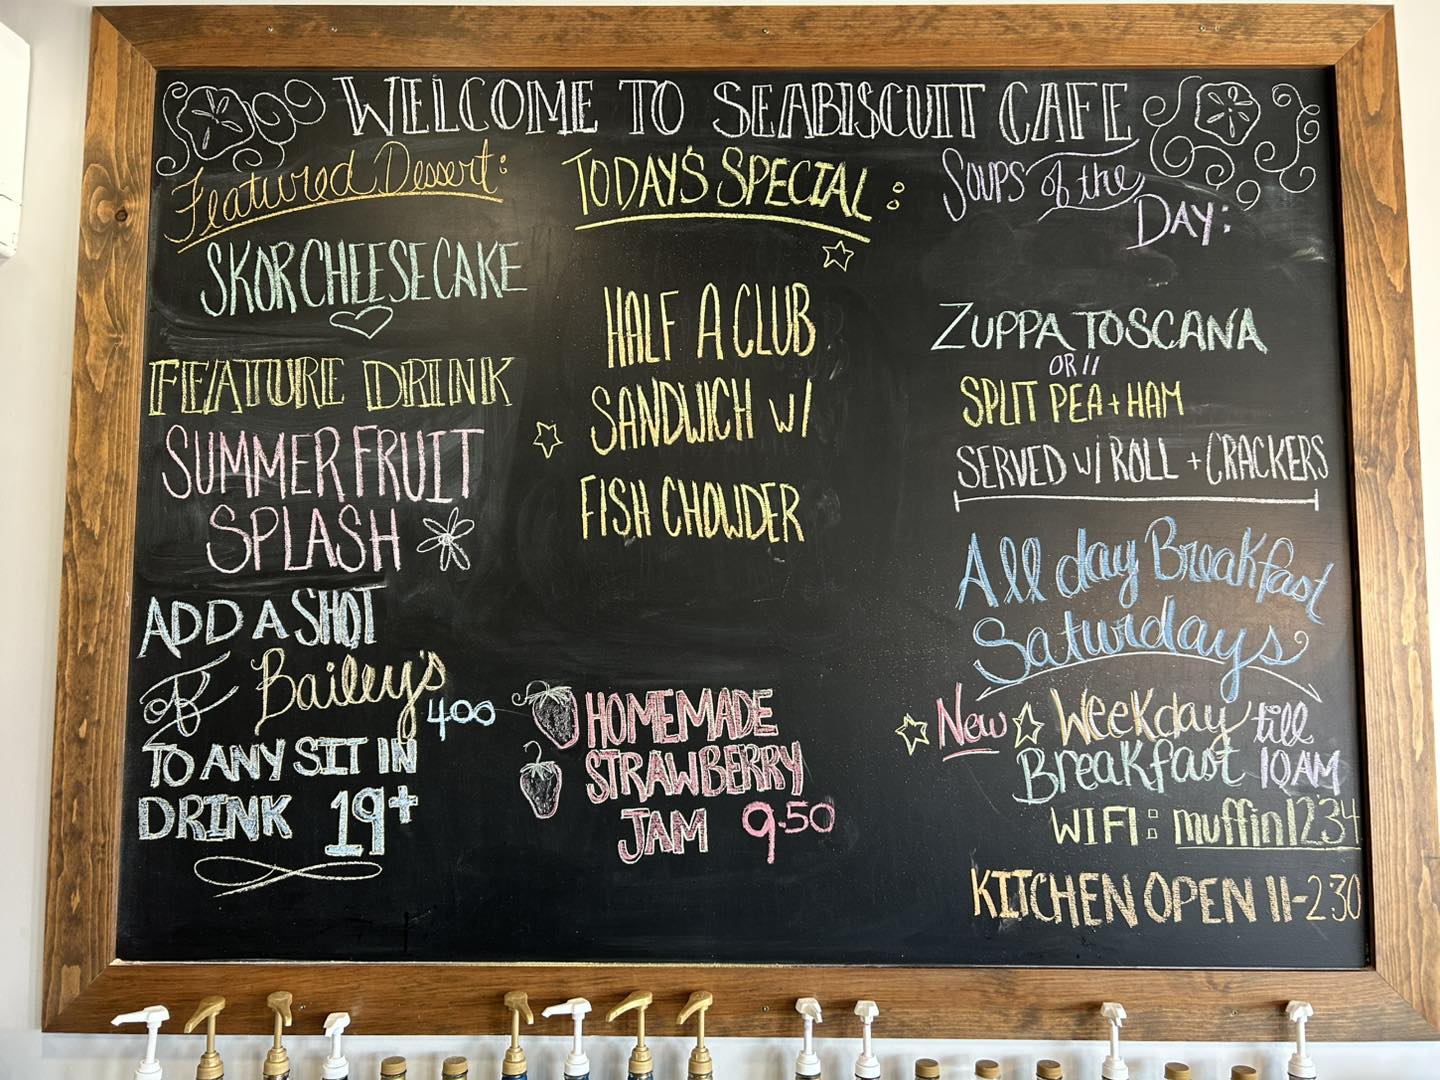 WELCOME TO SEABISCUIT CAFE
Featured Dessert:
SKOR CHEESECAKE
FEATURE DRINK
SUMMER FRUIT
SPLASH
ADD A SHOT
of Bailey's
400
TO ANY SIT IN
DRINK 19+
TODAY'S SPECIAL:
HALF A CLUB
SANDWICH W/
FISH CHOWDER
HOMEMADE
STRAWBERRY
JAM 9.50
SOUPS of the
DAY:
ZUPPA TOSCANA
OR //
SPLIT PEA + HAM
SERVED W/ ROLL + CRACKERS
All day Breakfast
Saturdays
New Weekday till
Breakfast 10AM
WIFI: muffin1234
KITCHEN OPEN 11-2:30